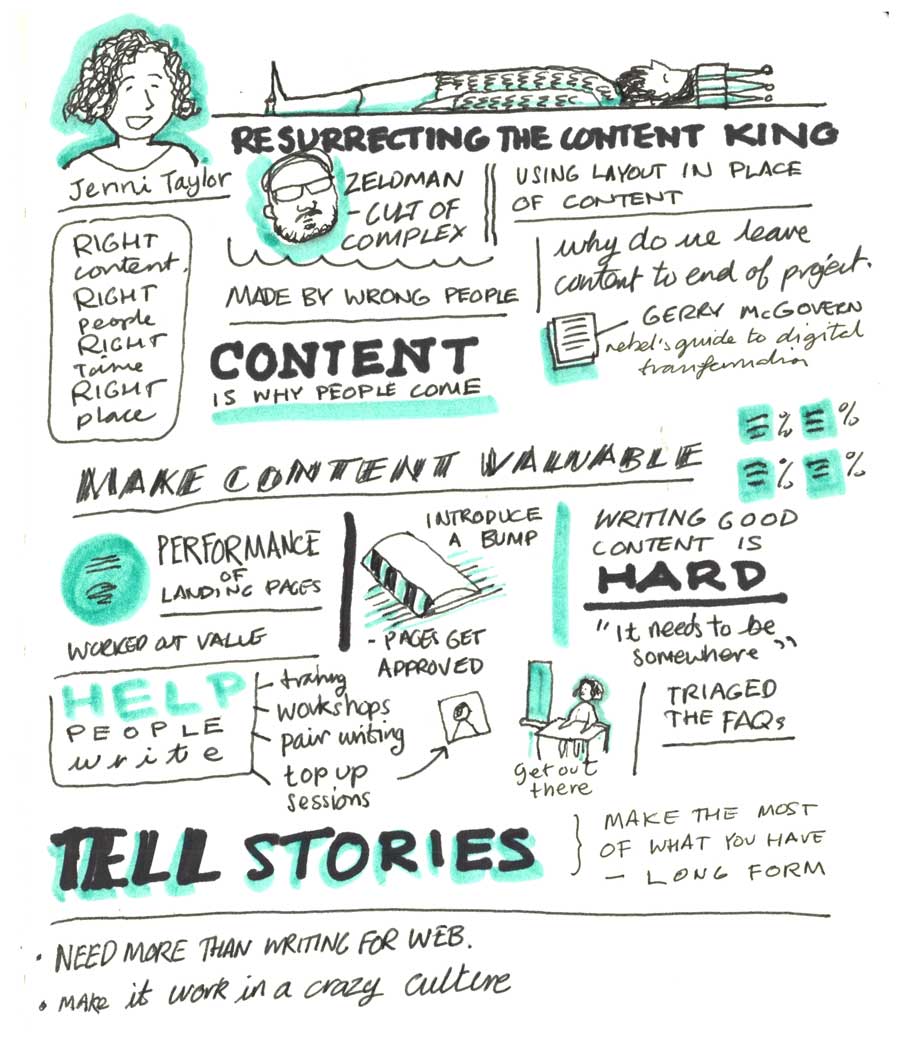 RESURRECTING THE CONTENT KING
Jenni Taylor
RIGHT
content.
RIGHT
people
RIGHT
Time
RIGHT
place
ZELDMAN
- CULT OF
COMPLEX
MADE BY WRONG PEOPLE
USING LAYOUT IN PLACE
OF CONTENT
why do we leave
content to end of project.
GERRY McGOVERN
rebel's guide to digital
transformation
CONTENT
IS WHY PEOPLE COME
MAKE CONTENT VALUABLE
% %
% %
PERFORMANCE
OF
LANDING PAGES
WORKED OUT VALUE
INTRODUCE
A BUMP
- PAGES GET
APPROVED
WRITING GOOD
CONTENT IS
HARD
"It needs to be
somewhere"
HELP
PEOPLE
write
training
workshops
pair writing
top up
sessions
get out
there
TRIAGED
THE FAQs
TELL STORIES
MAKE THE MOST
OF WHAT YOU HAVE
- LONG FORM
• NEED MORE THAN WRITING FOR WEB.
• MAKE it work in a crazy culture